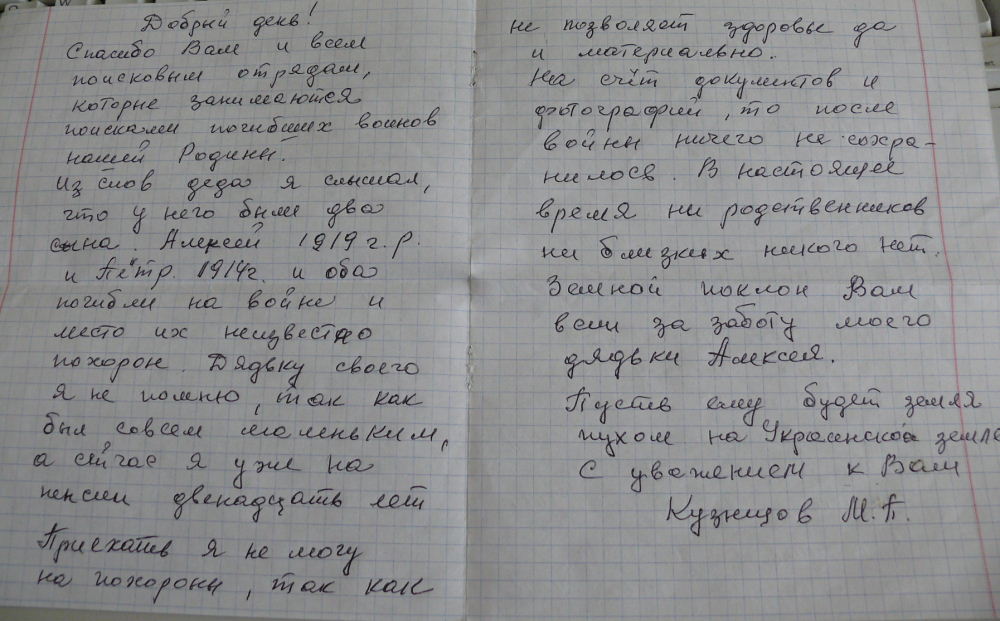 Добрый день!
Спасибо Вам и всем
поисковым отрядам,
которые занимаются
поисками погибших воинов
нашей Родины.
Из слов деда я слышал,
что у него были два
сына. Алексей 1919 г. р.
и Пётр. 1914г. и оба
погибли на войне и
место их неизвестно
похорон. Дядьку своего
я не помню, так как
был совсем маленьким,
а сейчас я уже на
пенсии двенадцать лет
Приехать я не могу
на похороны, так как
не позволяет здоровье да
и материально.
На счёт документов и
фотографий, то после
войны ничего не сохра-
нилось. В настоящее
время ни родственников
ни близких никого нет.
Земной поклон Вам
всем за заботу моего
дядьки Алексея.
Пусть ему будет земля
пухом на Украинской земле
С уважением к Вам
Кузнецов М.П.